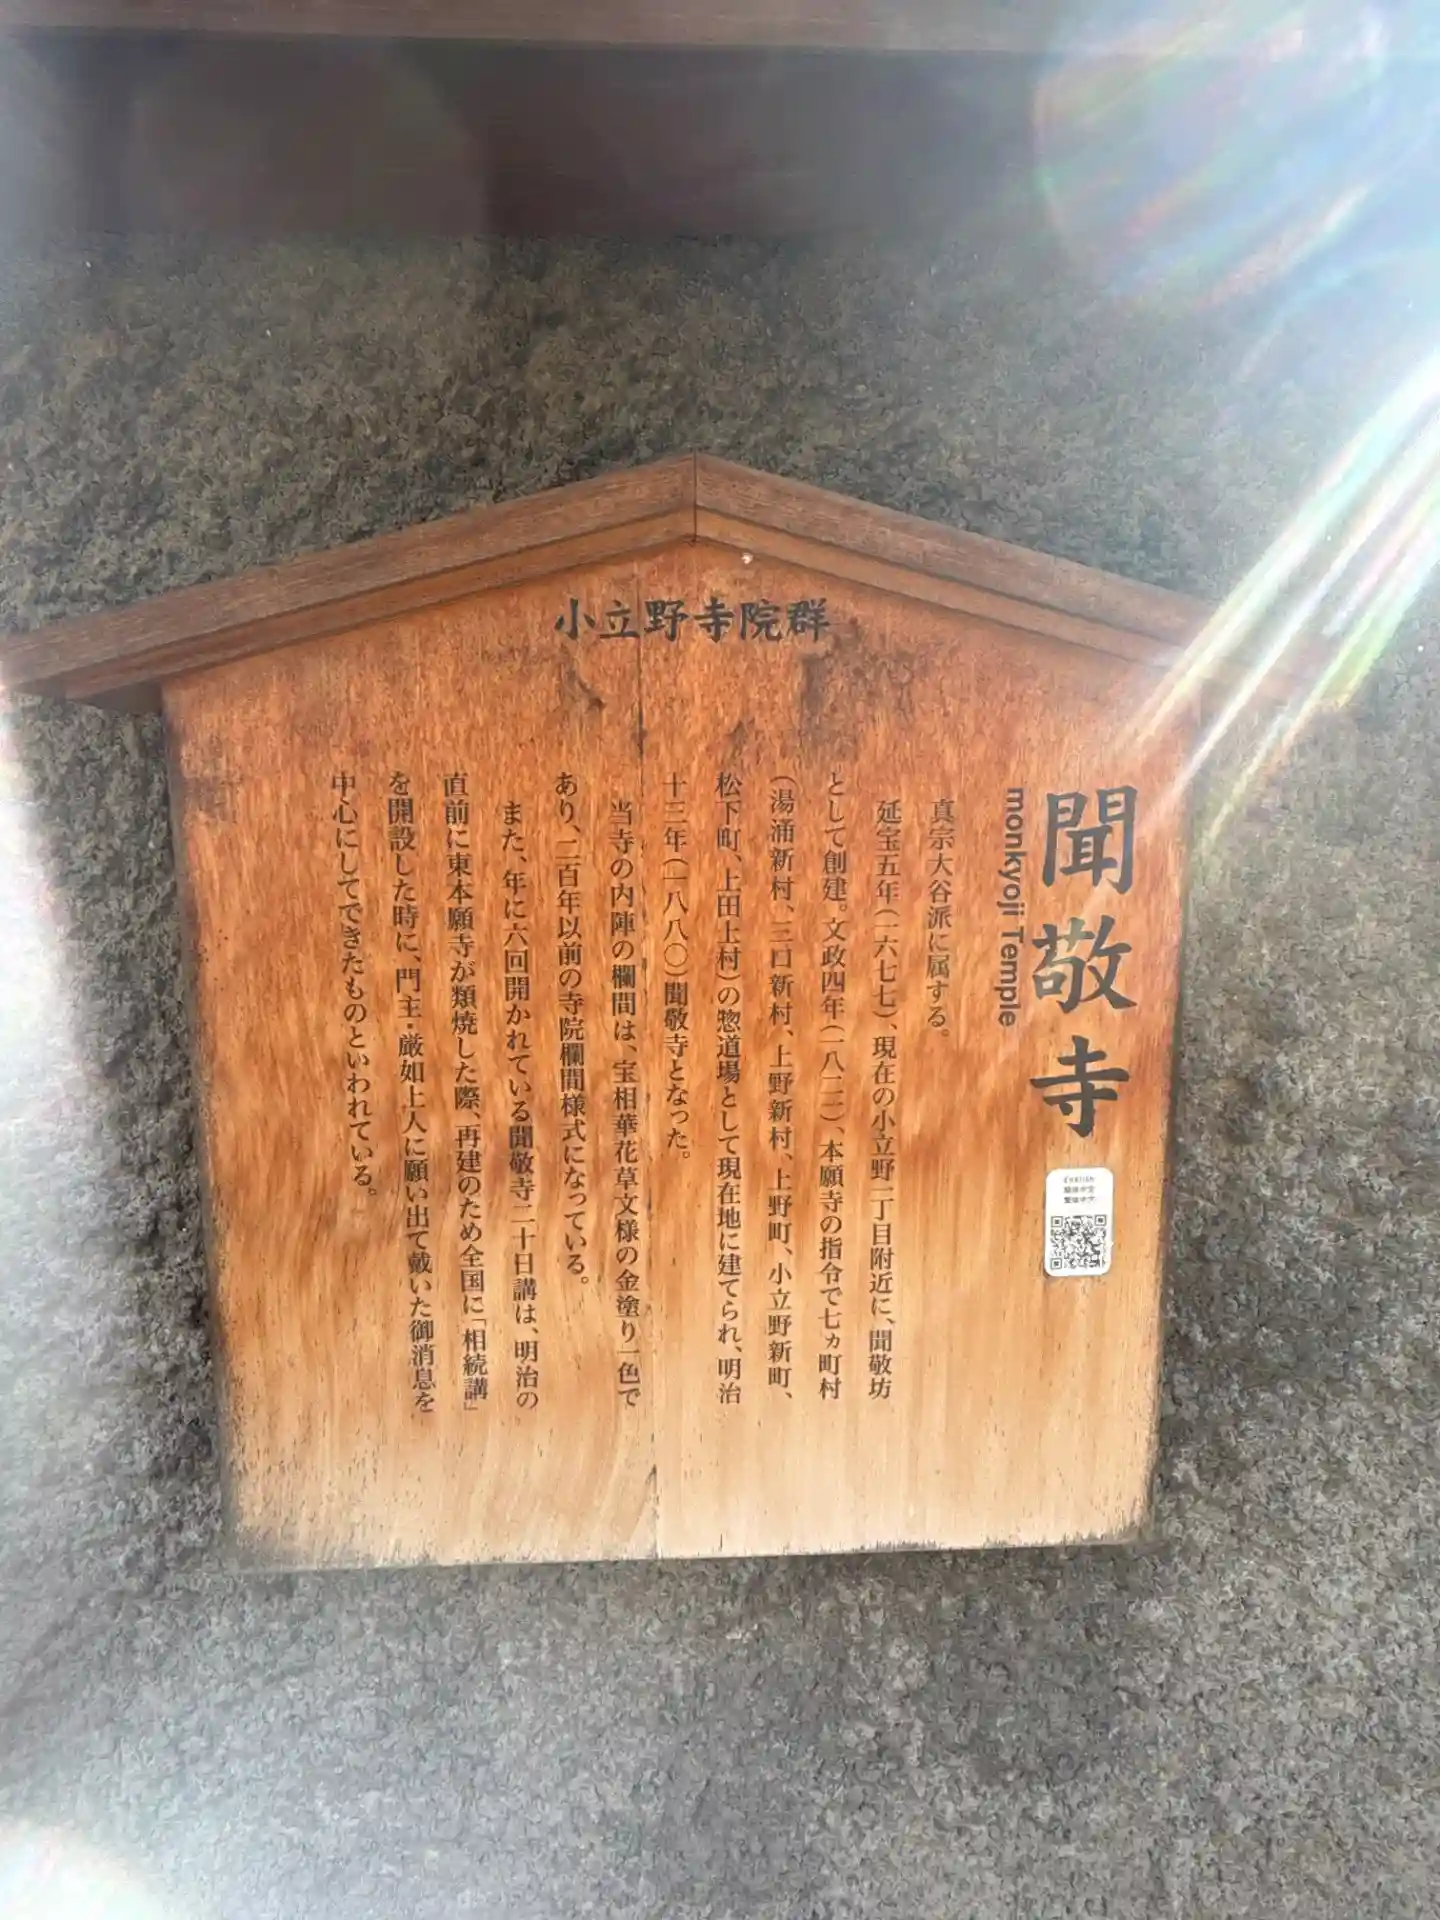 小立野寺院群
聞敬寺
monkyoji Temple
真宗大谷派に属する。
延宝五年（一六七七）、現在の小立野二丁目附近に、聞敬坊
として創建。文政四年（一八二一）、本願寺の指令で七ヵ町村
（湯涌新村、三口新村、上野新村、上野町、小立野新町、
松下町、上田上村）の惣道場として現在地に建てられ、明治
十三年（一八八〇）聞敬寺となった。
当寺の内陣の欄間は、宝相華花草文様の金塗り一色で
あり、二百年以前の寺院欄間様式になっている。
また、年に六回開かれている聞敬寺二十日講は、明治の
直前に東本願寺が類焼した際、再建のため全国に「相続講」
を開設した時に、門主・厳如上人に願い出て戴いた御消息を
中心にしてできたものといわれている。
ENGLISH
簡体中文
繁体中文